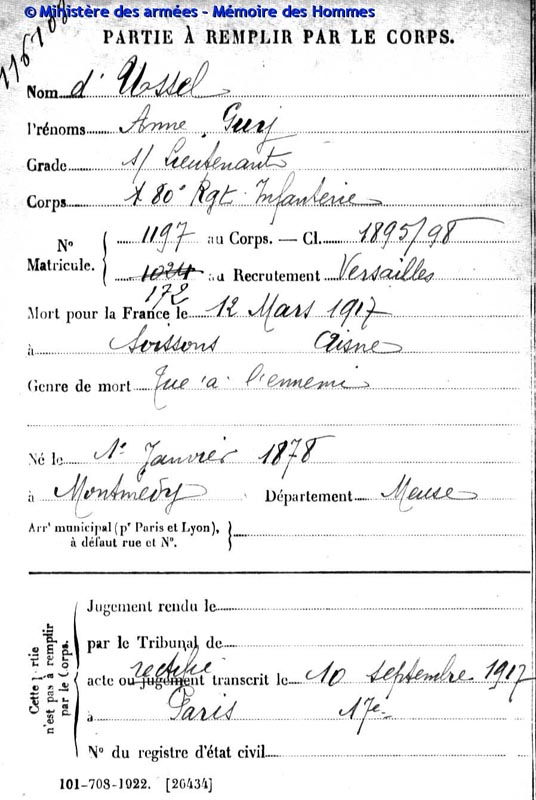 © Ministère des armées - Mémoire des Hommes
PARTIE À REMPLIR PAR LE CORPS.
Nom d' Ussel
Prénoms Anne, Guy
Grade s/ Lieutenant
Corps 80e Rgt Infanterie
N° Matricule. { 1197 au Corps. — Cl. 1895/98
1024 au Recrutement Versailles
172
Mort pour la France le 12 Mars 1917
à Soissons Aisne
Genre de mort Tué à l'ennemi
Né le 1er Janvier 1878
à Montmédy Département Meuse
Arrt municipal (pr Paris et Lyon), à défaut rue et N°. {
Cette partie n'est pas à remplir par le Corps.
Jugement rendu le
par le Tribunal de
rectifié
acte ou jugement transcrit le 10 septembre 1917
à Paris 17e
N° du registre d'état civil
101-708-1922. [26434]